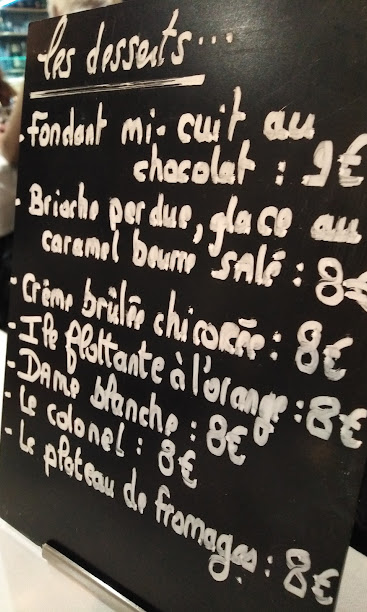 les desserts...
- Fondant mi-cuit au
chocolat : 9€
- Brioche perdue, glace au
caramel beurre salé : 8€
- Crème brûlée chicorée : 8€
- Ile flottante à l'orange : 8€
- Dame blanche : 8€
- Le colonel : 8€
- Le plateau de fromages : 8€